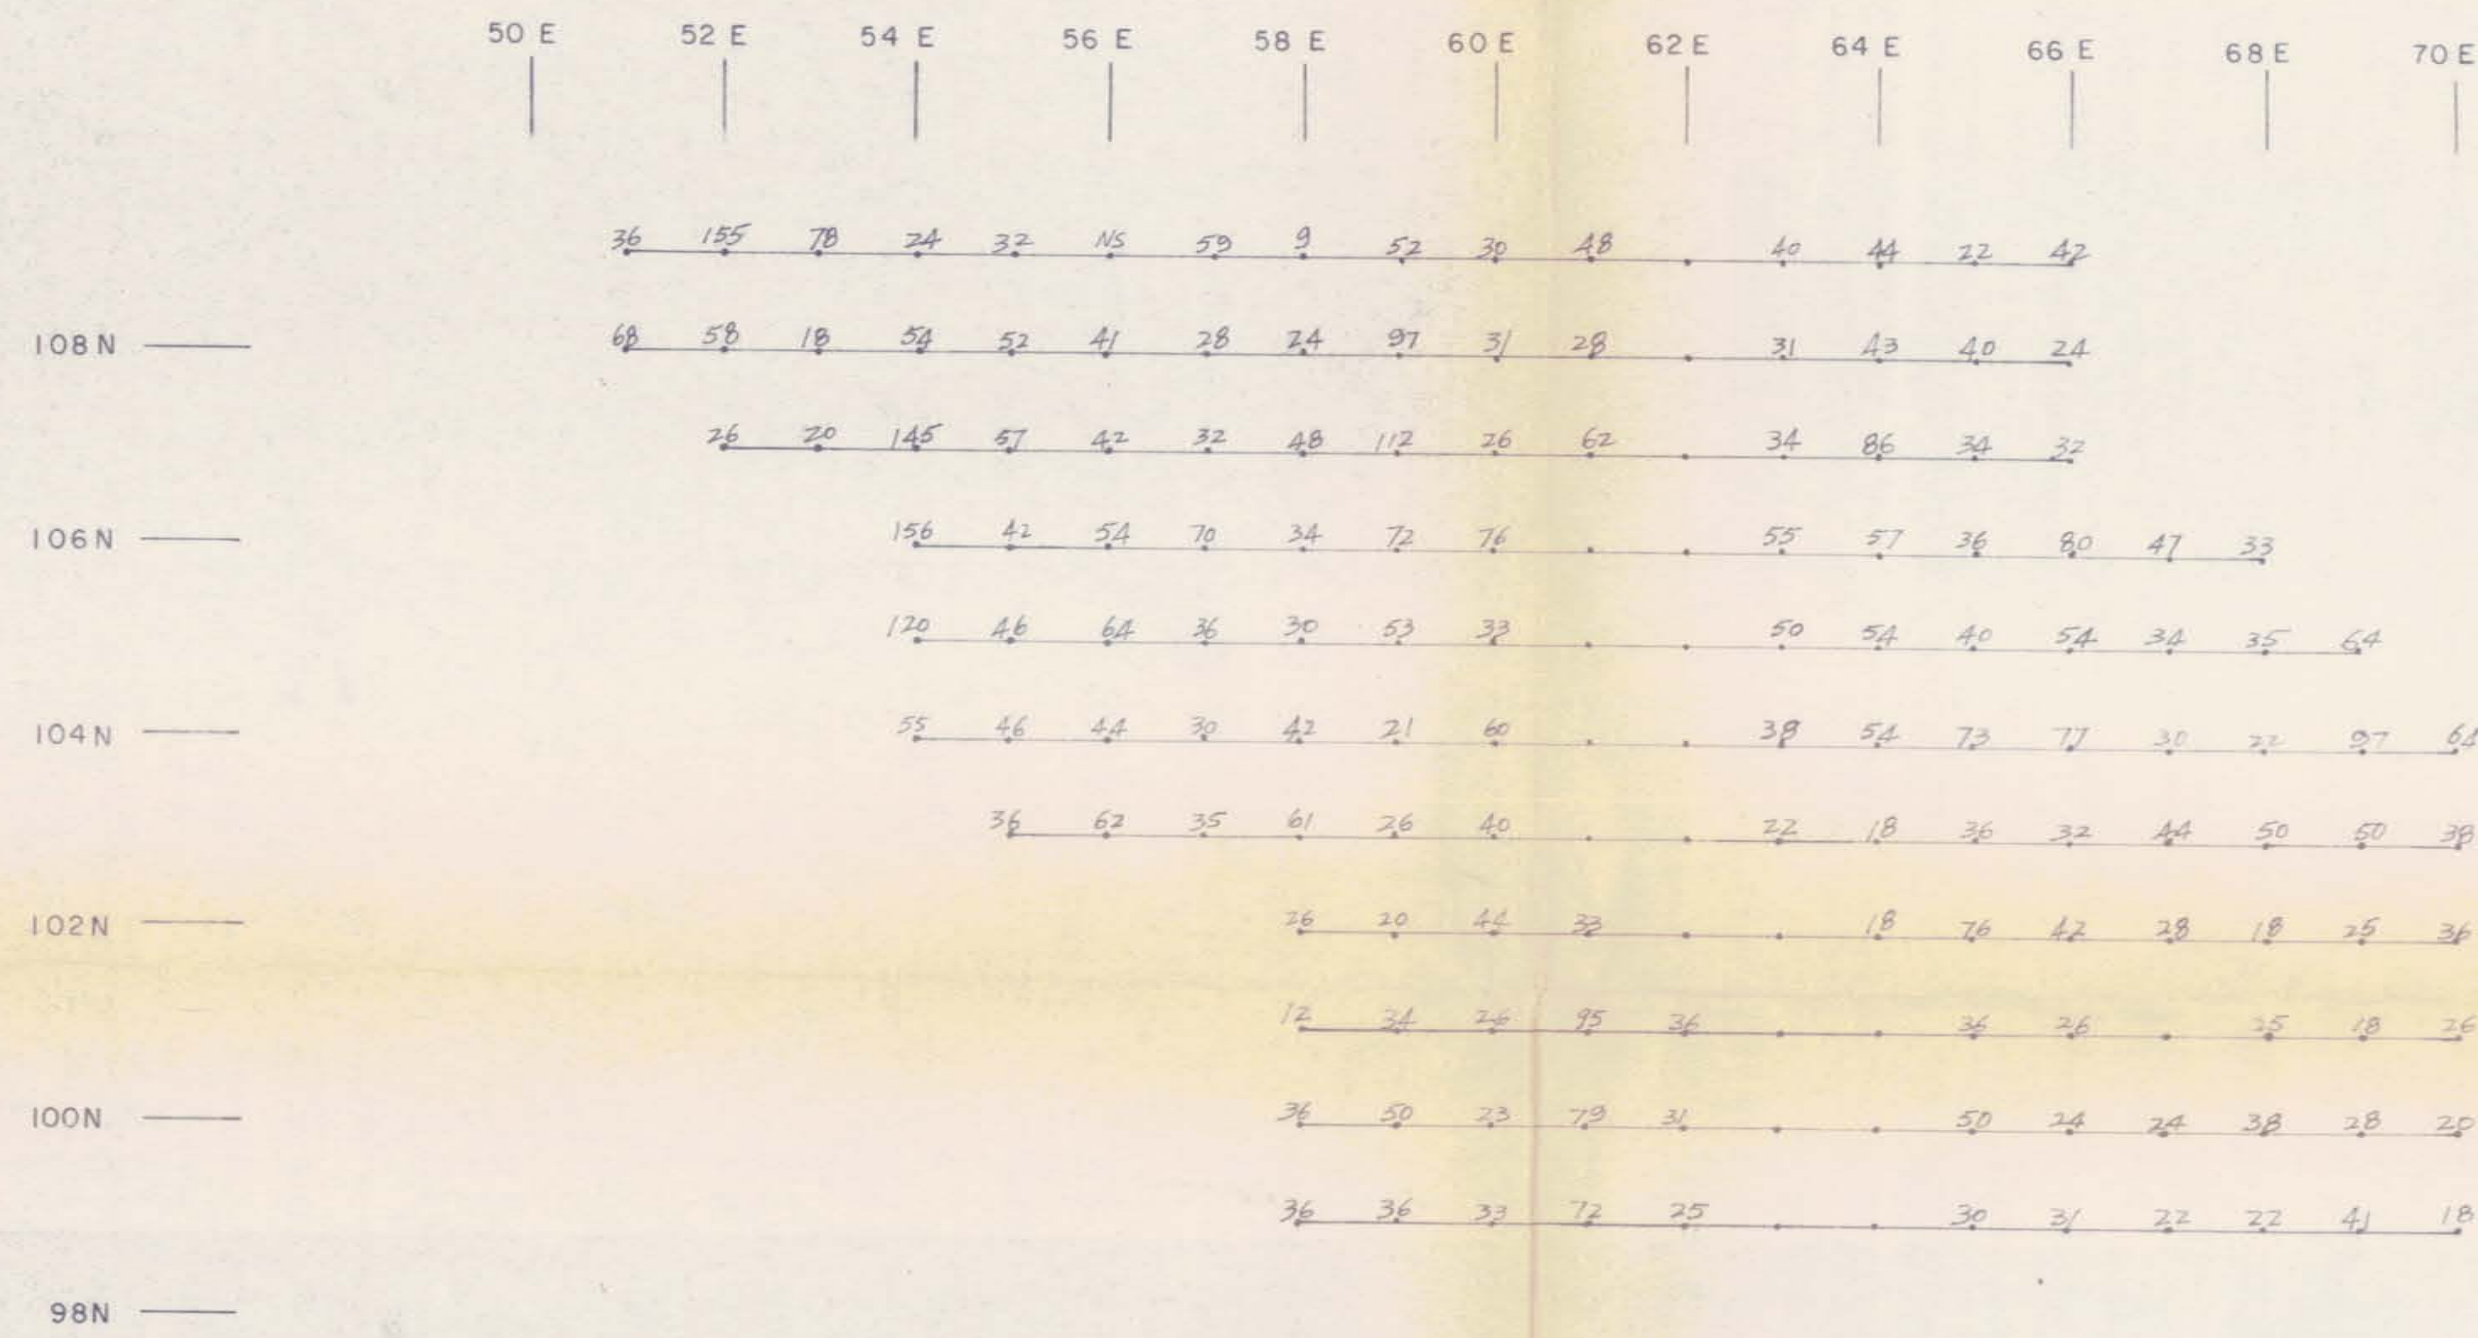 50 E 52 E 54 E 56 E 58 E 60 E 62 E 64 E 66 E 68 E 70 E
36 155 78 24 32 NS 59 9 52 30 48 40 44 22 42
108N 68 58 18 54 52 41 28 24 97 31 28 31 43 40 24
26 20 145 57 42 32 48 112 26 62 34 86 34 32
106N 156 42 54 70 34 72 76 55 57 36 80 47 33
120 46 64 36 30 53 33 50 54 40 54 34 35 64
104N 55 46 44 30 42 21 60 38 54 73 77 30 22 97 64
36 62 35 61 26 40 22 18 36 32 44 50 50 38
102N 26 20 44 33 18 76 42 28 18 25 36
12 34 26 95 36 36 26 18 26
100N 36 50 23 79 31 50 24 24 38 28 20
36 36 33 72 25 30 31 22 22 41 18
98N